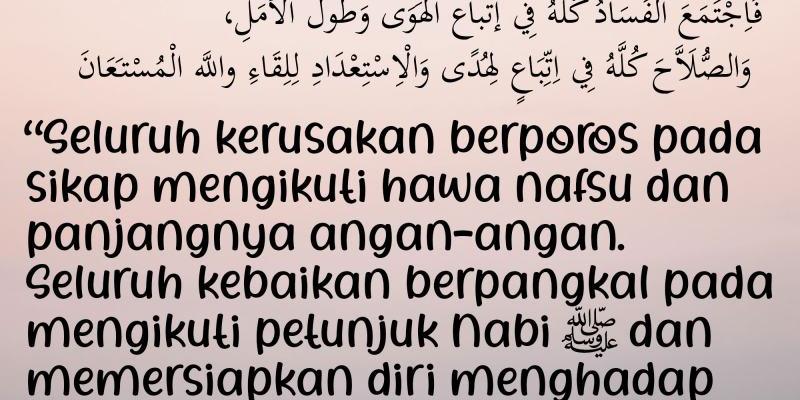 فَاِجْتَمَعَ الْفَسَادُ كُلُّهُ فِي إتباع الْهَوَى وَطُولِ الْأَمَلِ،
وَالصُّلاَّحَ كُلَّهُ فِي اِتِّبَاعٍ لِهُدًى وَالْاِسْتِعْدَادِ لِلِقَاءِ واللَّه الْمُسْتَعَانَ
“Seluruh kerusakan berporos pada
sikap mengikuti hawa nafsu dan
panjangnya angan-angan.
Seluruh kebaikan berpangkal pada
mengikuti petunjuk Nabi ﷺ dan
memersiapkan diri menghadap